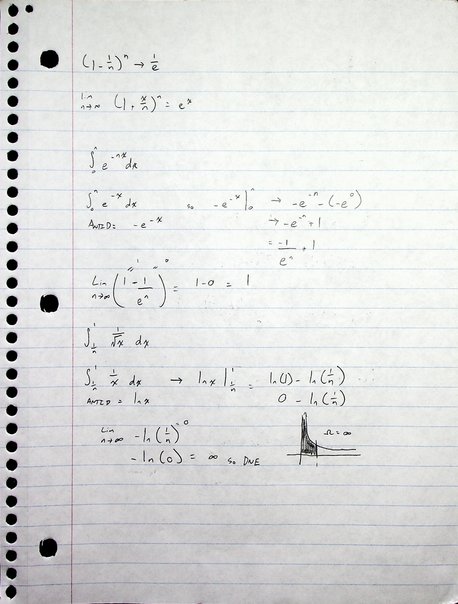 (1 - 1/n)^n → 1/e
lim n→∞ (1 + x/n)^n = e^x
∫_0^n e^-nx dx
∫_0^n e^-x dx so -e^-x |_0^n → -e^-n - (-e^0)
ANTID = -e^-x → -e^-n + 1
= -1/e^n + 1
Lim n→∞ (1 - 1/e^n) = 1 - 0 = 1
∫_1/n^1 1/√x dx
∫_1/n^1 1/x dx → ln x |_1/n^1 = ln(1) - ln(1/n)
ANTID = ln x 0 - ln(1/n)
Lim n→∞ - ln(1/n)^0
- ln(0) = ∞ so DNE
= ∞